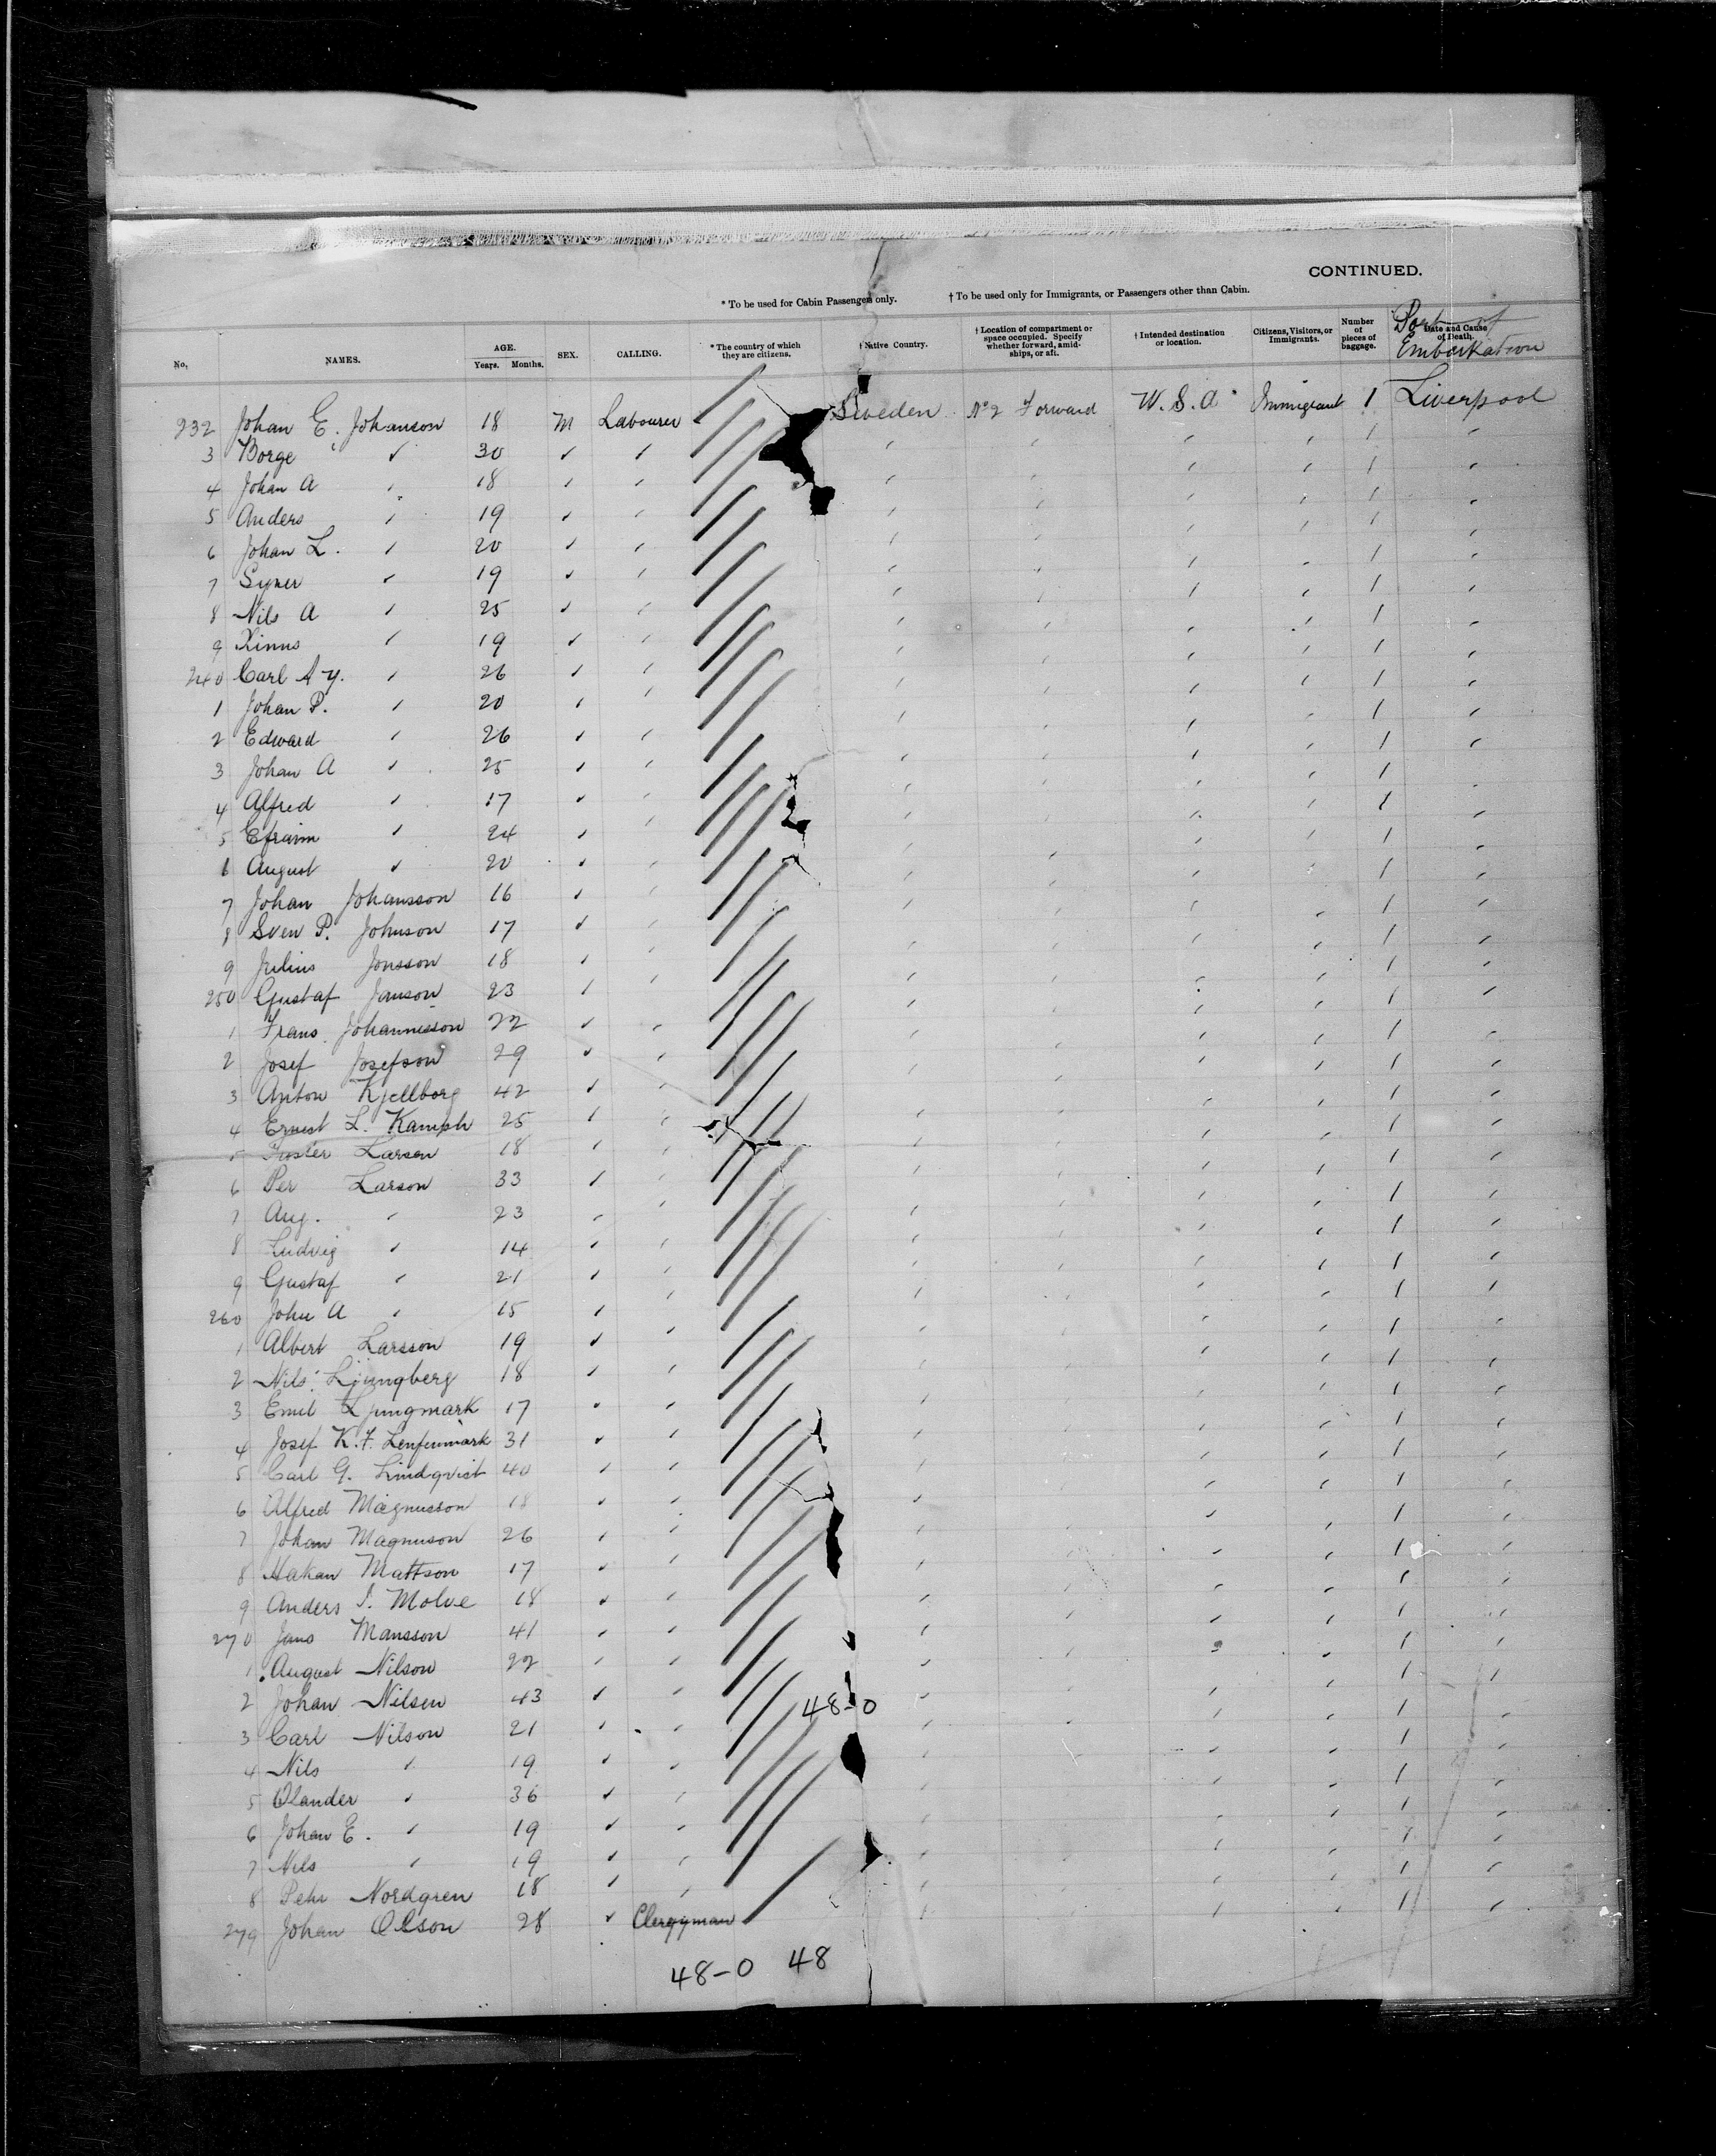 CONTINUED.
* To be used for Cabin Passengers only. † To be used only for Immigrants, or Passengers other than Cabin.
No. NAMES. AGE. Years. Months. SEX. CALLING. * The country of which they are citizens. † Native Country. † Location of compartment or space occupied. Specify whether forward, amidships, or aft. † Intended destination or location. Citizens, Visitors, or Immigrants. Number of pieces of baggage. Date and Cause of Death.
Port of Embarkation
232 Johan E. Johanson 18 M Labourer Sweden No 2 Forward U.S.A Immigrant 1 Liverpool
3 Borge " 30 " " " " " " 1 "
4 Johan A " 18 " " " " " " 1 "
5 Anders " 19 " " " " " " 1 "
6 Johan L. " 20 " " " " " " 1 "
7 " 19 " " " " " " 1 "
8 Nils A " 25 " " " " " " 1 "
9 " 19 " " " " " " 1 "
240 Carl A " 26 " " " " " " 1 "
1 Johan P. " 20 " " " " " " 1 "
2 Edward " 26 " " " " " " 1 "
3 Johan A " 25 " " " " " " 1 "
4 Alfred " 17 " " " " " " 1 "
5 Efraim " 24 " " " " " " 1 "
6 August " 20 " " " " " " 1 "
7 Johan Johansson 16 " " " " " " 1 "
8 Sven P. Johnson 17 " " " " " " 1 "
9 Julius Jonsson 18 " " " " " " 1 "
250 Gustaf Janson 23 " " " " " " 1 "
1 Frans Johannisson 22 " " " " " " 1 "
2 Josef Josefson 29 " " " " " " 1 "
3 Anton Kjellborg 42 " " " " " " 1 "
4 Ernest L. Kamph 25 " " " " " " 1 "
5 Larsen 18 " " " " " " 1 "
6 Per Larson 33 " " " " " " 1 "
7 Aug. " 23 " " " " " " 1 "
8 Ludvig " 14 " " " " " " 1 "
9 Gustaf " 21 " " " " " " 1 "
260 John A " 15 " " " " " " 1 "
1 Albert Larsson 19 " " " " " " 1 "
2 Nils Ljungberg 18 " " " " " " 1 "
3 Emil Ljungmark 17 " " " " " " 1 "
4 Josef K. F. 31 " " " " " " 1 "
5 Carl G. Lindqvist 40 " " " " " " 1 "
6 Alfred Magnusson 18 " " " " " " 1 "
7 Johan Magnuson 26 " " " " " " 1 "
8 Hakan Mattson 17 " " " " " " 1 "
9 Anders Molve 18 " " " " " " 1 "
270 Jans Mansson 41 " " " " " " 1 "
1 August Nilson 22 " " " " " " 1 "
2 Johan Nilsen 43 " " 48-0 " " " " 1 "
3 Carl Nilson 21 " " " " " " 1 "
4 Nils " 19 " " " " " " 1 "
5 Olander " 36 " " " " " " 1 "
6 Johan E. " 19 " " " " " " 1 "
7 Nils " 19 " " " " " " 1 "
8 Pehr Nordgren 18 " " " " " " 1 "
279 Johan Olson 28 " Clergyman " " " " 1 "
48-0 48